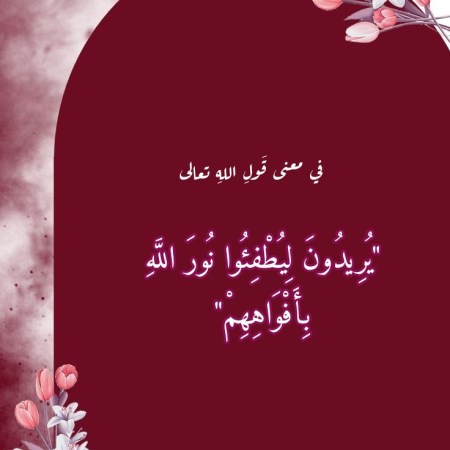 في معنى قَولِ اللهِ تعالى
"يُرِيدُونَ لِيُطْفِئُوا نُورَ اللَّهِ
بِأَفْوَاهِهِمْ"